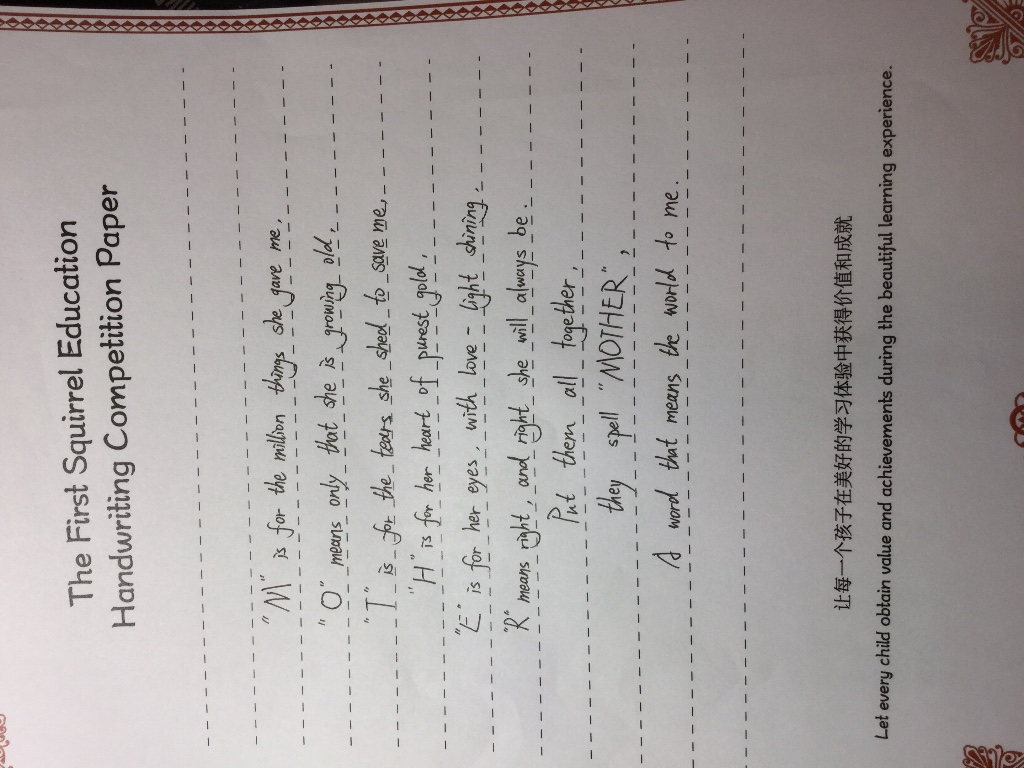 The First Squirrel Education
Handwriting Competition Paper
"M" is for the million things she gave me,
"O" means only that she is growing old,
"T" is for the tears she shed to save me,
"H" is for her heart of purest gold,
"E" is for her eyes, with love-light shining,
"R" means right, and right she will always be.
Put them all together,
they spell "MOTHER",
A word that means the world to me.
让每一个孩子在美好的学习体验中获得价值和成就
Let every child obtain value and achievements during the beautiful learning experience.